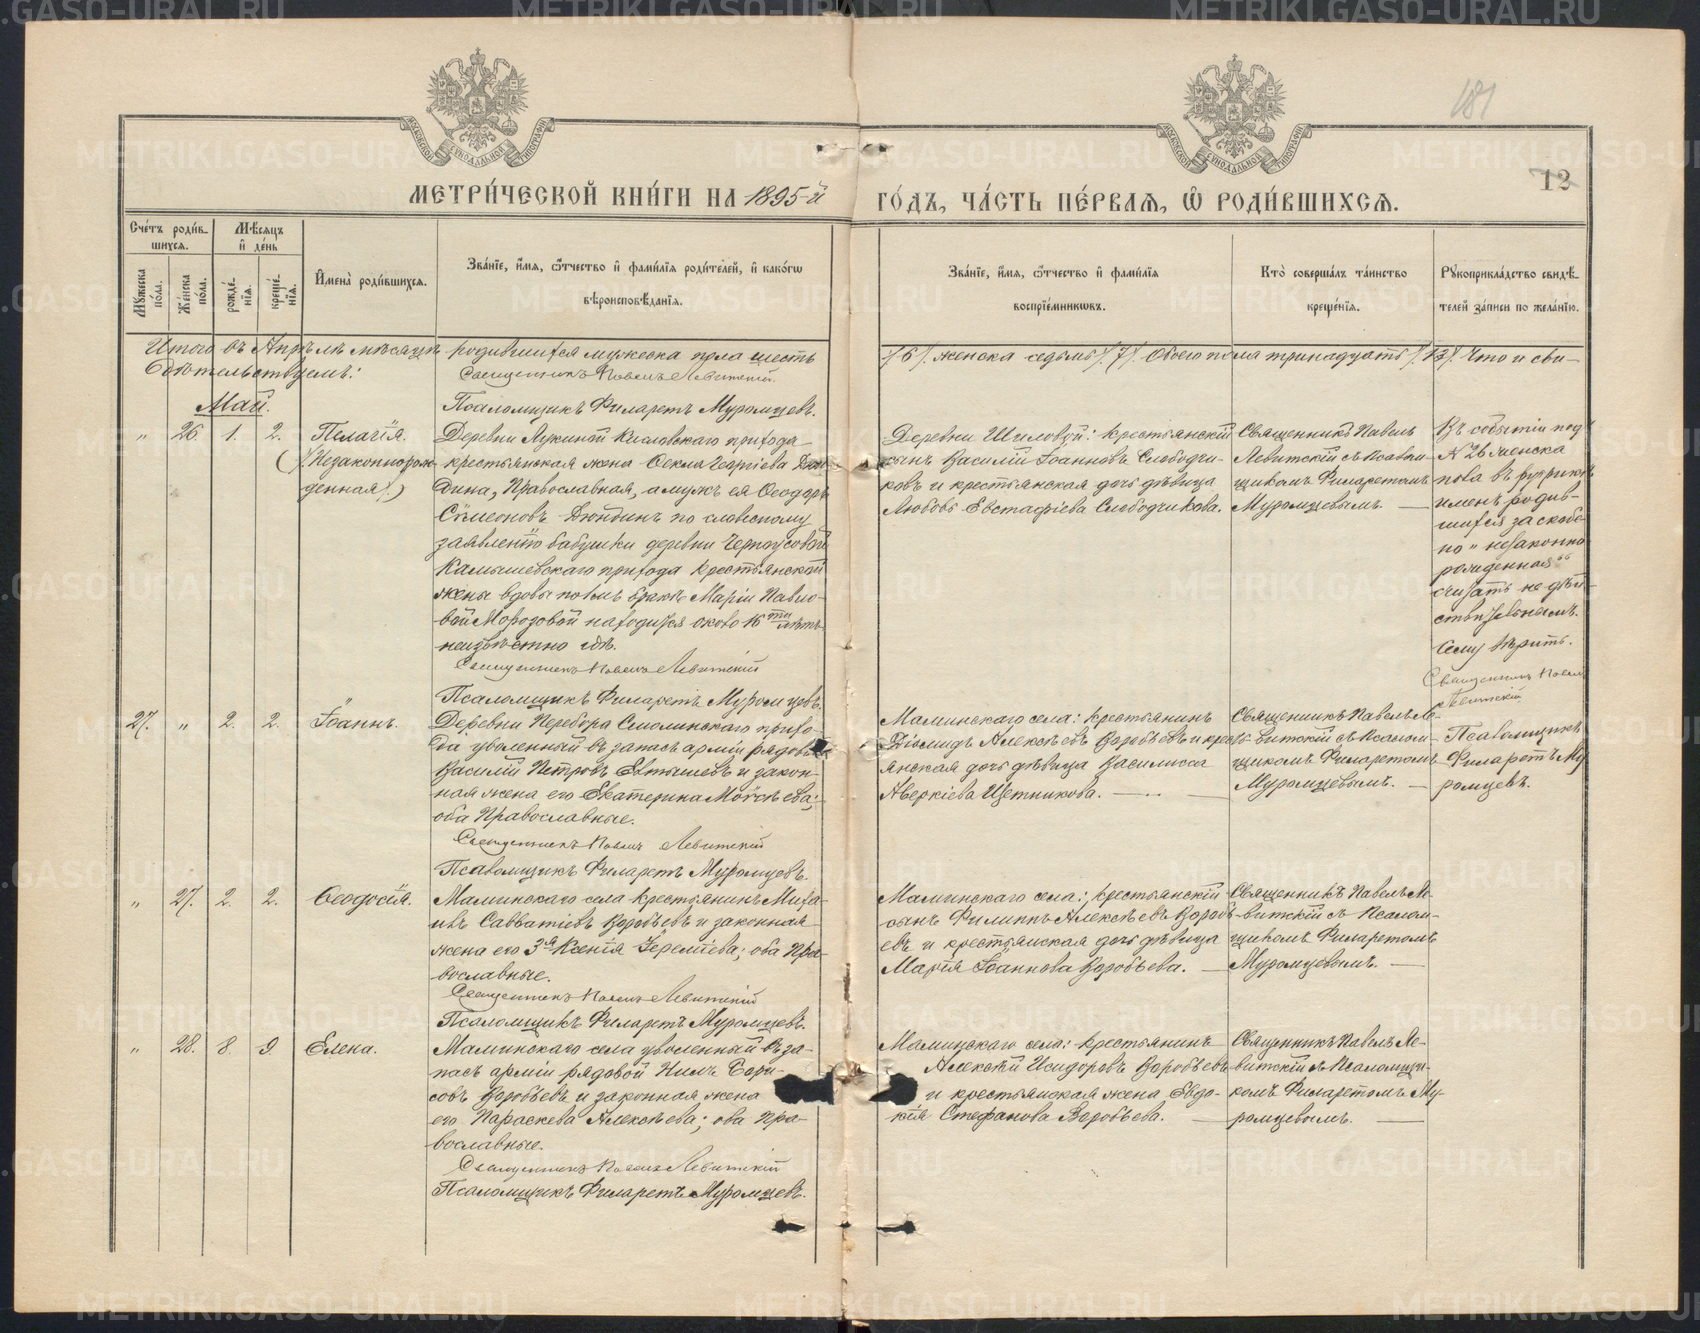 METRIKI.GASO-URAL.RU
181
12
МОСКОВСКОЙ СѴНОДАЛЬНОЙ ТИПОГРАФІИ
МОСКОВСКОЙ СѴНОДАЛЬНОЙ ТИПОГРАФІИ
МЕТРИ́ЧЕСКОЙ КНИ́ГИ НА 1895-й
ГО́ДЪ, ЧА́СТЬ ПЕ́РВАѦ, Ѡ҆ РОДИ́ВШИХСѦ.
Сче́тъ роди́в-
шихсѧ.
Мꙋ́жеска по́ла.
Же́нска по́ла.
Мѣ́сѧцъ и҆ де́нь
рожде́-
нїѧ.
креще́-
нїѧ.
И҆мена̀ роди́вшихсѧ.
Зва́нїе, и҆́мѧ, ѻ҆́тчество и҆ фами́лїѧ роди́телей, и҆ како́гѡ
вѣроисповѣ́данїѧ.
Зва́нїе, и҆́мѧ, ѻ҆́тчество и҆ фами́лїѧ
воспрїе́мникѡвъ.
Кто̀ соверша́лъ та́инство
креще́нїѧ.
Рꙋкоприкла́дство свидѣ́-
телей за́писи по жела́нїю.
Итого въ Апрѣлѣ мѣсяцѣ родившихся мужеска пола шесть
/6/. женска седьмь /7/. Обоего пола тринадцать /13/. Что и сви-
дѣтельствуемъ:
Священникъ Павелъ Левитскій
Псаломщикъ Филаретъ Муромцевъ.
Май.
" 26 1. 2. Пелагія.
(/Незаконнорож-
денная/)
Деревни Лукиной Кисловскаго прихода
крестьянская жена Ѳекла Георгіева Дюн-
дина, Православная, а мужъ ея Ѳеодоръ
Сѵмеоновъ Дюндинъ по словесному
заявленію бабушки деревни Черноусовой
Камышевскаго прихода крестьянской
жены вдовы по 1мъ бракѣ Маріи Павло-
вой Морозовой находится около 16ти лѣтъ
неизвѣстно гдѣ.
Священникъ Павелъ Левитскій
Псаломщикъ Филаретъ Муромцевъ.
Деревни Шиловой: крестьянскій
сынъ Василій Іоанновъ Слободчи-
ковъ и крестьянская дочь дѣвица
Любовь Евстафіева Слободчикова.
Священникъ Павелъ
Левитскій съ Псалом-
щикомъ Филаретомъ
Муромцевымъ.
Въ событіи подъ
№ 26 женска
пола въ рубрикѣ
именъ родив-
шихся за скобе
но "незаконно
рожденная"
считать не дѣй-
ствительнымъ.
Сему вѣрить.
Священникъ Павелъ
Левитскій
Псаломщикъ
Филаретъ Му
ромцевъ.
27. " 2. 2. Іоаннъ.
Деревни Перебора Смолинскаго прихо-
да уволенный въ запасъ арміи рядовой
Василій Петровъ Евтышевъ и закон-
ная жена его Екатерина Моѵсѣева;
оба Православные.
Священникъ Павелъ Левитскій
Псаломщикъ Филаретъ Муромцевъ.
Маминскаго села: крестьянинъ
Діомидъ Алексѣевъ Воробьевъ и кресть-
янская дочь дѣвица Василисса
Аверкіева Щетникова.
Священникъ Павелъ Ле-
витскій съ Псалом-
щикомъ Филаретомъ
Муромцевымъ.
" 27. 2. 2. Ѳеодосія.
Маминскаго села крестьянинъ Миха-
илъ Савватіевъ Воробьевъ и законная
жена его 3я Ксенія Іереміева; оба Пра-
вославные.
Священникъ Павелъ Левитскій
Псаломщикъ Филаретъ Муромцевъ.
Маминскаго села: крестьянскій
сынъ Филиппъ Алексѣевъ Воробь-
евъ и крестьянская дочь дѣвица
Марія Іоаннова Воробьева.
Священникъ Павелъ Ле-
витскій съ Псалом-
щикомъ Филаретомъ
Муромцевымъ.
" 28. 8. 9. Елена.
Маминскаго села уволенный въ за-
пасъ арміи рядовой Нилъ Бори-
совъ Воробьевъ и законная жена
его Параскева Алексѣева; оба Пра-
вославные.
Священникъ Павелъ Левитскій
Псаломщикъ Филаретъ Муромцевъ.
Маминскаго села: крестьянинъ
Алексѣй Исидоровъ Воробьевъ
и крестьянская жена Евдо-
кія Стефанова Воробьева.
Священникъ Павелъ Ле-
витскій съ Псаломщи-
комъ Филаретомъ Му-
ромцевымъ.